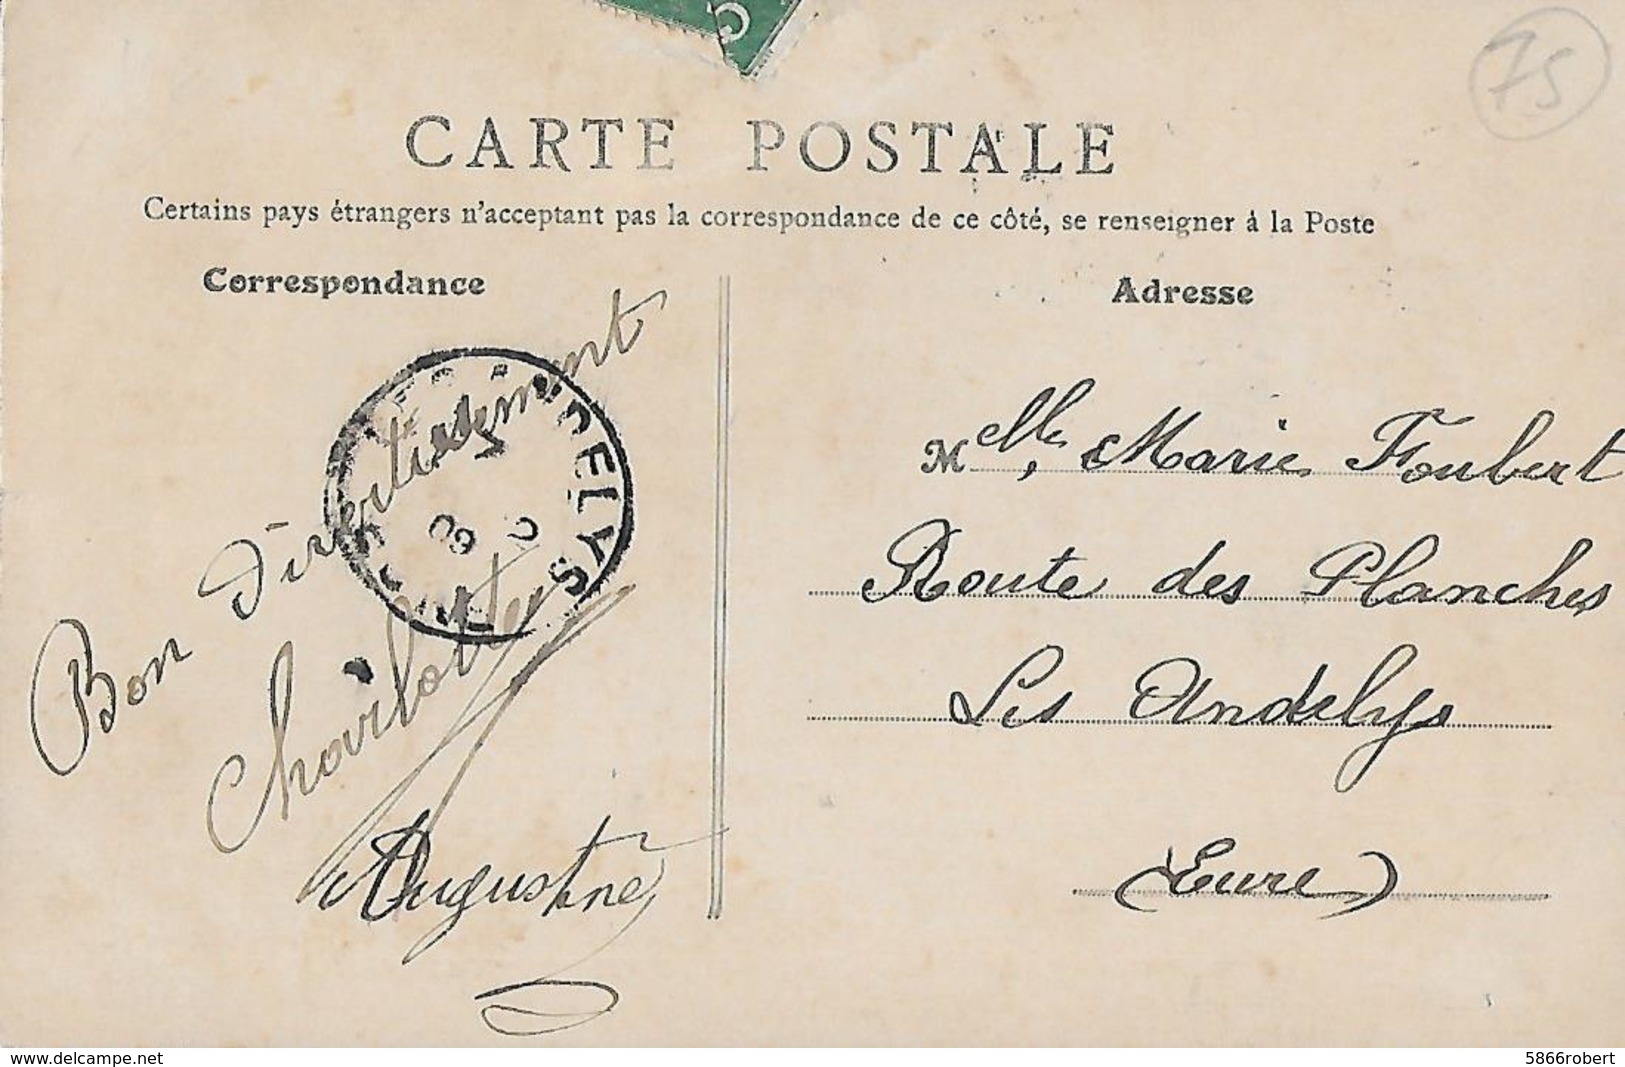 75
CARTE POSTALE
Certains pays étrangers n'acceptant pas la correspondance de ce côté, se renseigner à la Poste
Correspondance
Bon Divertissement
Charlotte
Augustine
ELYS
09
Adresse
Melle, Marie Foubert
Route des Planches
Les Andelys
(Eure)
www.delcampe.net
5866robert